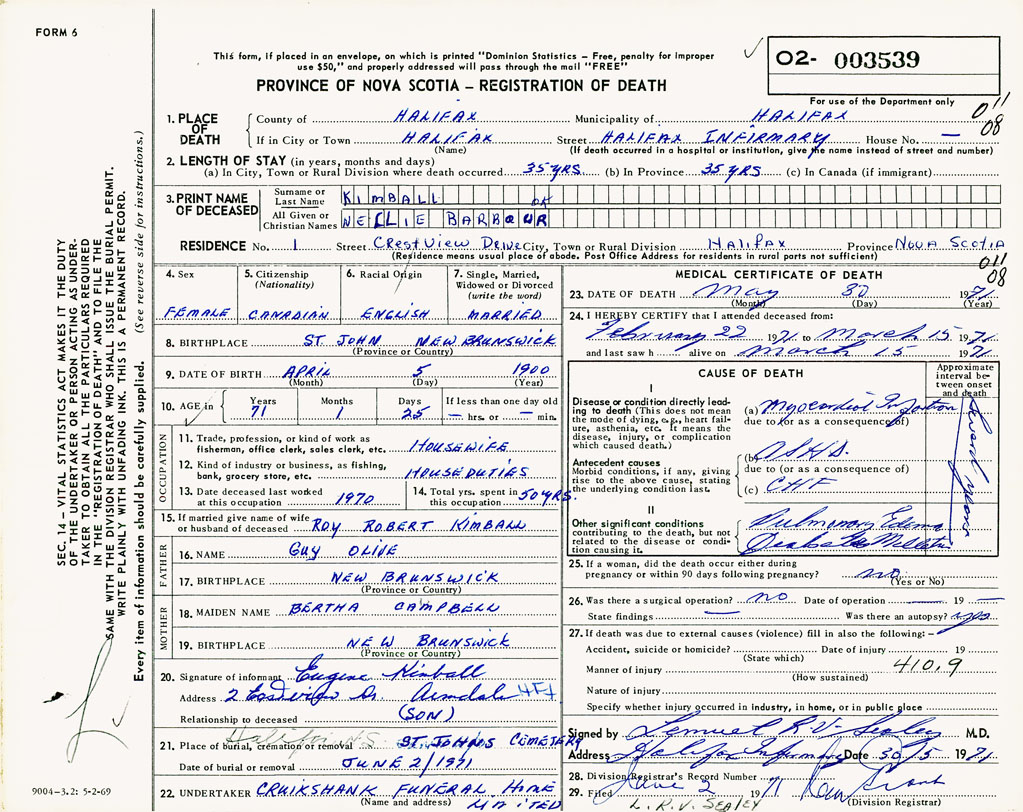 FORM 6
This form, if placed in an envelope, on which is printed "Dominion Statistics – Free, penalty for improper
use $50," and properly addressed will pass through the mail "FREE"
O2- 003539
PROVINCE OF NOVA SCOTIA – REGISTRATION OF DEATH
For use of the Department only
011
08
1. PLACE OF DEATH County of HALIFAX Municipality of HALIFAX
If in City or Town HALIFAX Street HALIFAX INFIRMARY House No. —
(Name) (If death occurred in a hospital or institution, give the name instead of street and number)
2. LENGTH OF STAY (in years, months and days)
(a) In City, Town or Rural Division where death occurred 35 YRS (b) In Province 35 YRS (c) In Canada (if immigrant)
3. PRINT NAME OF DECEASED Surname or Last Name KIMBALL
All Given or Christian Names NELLIE BARBOUR
OK
RESIDENCE No. 1 Street CREST VIEW DRIVE City, Town or Rural Division HALIFAX Province NOVA SCOTIA
(Residence means usual place of abode. Post Office Address for residents in rural parts not sufficient)
011
08
4. Sex 5. Citizenship (Nationality) 6. Racial Origin 7. Single, Married, Widowed or Divorced (write the word)
FEMALE CANADIAN ENGLISH MARRIED
8. BIRTHPLACE ST. JOHN NEW BRUNSWICK
(Province or Country)
9. DATE OF BIRTH APRIL 5 1900
(Month) (Day) (Year)
10. AGE in Years Months Days If less than one day old
71 1 25 — hrs. or — min.
OCCUPATION
11. Trade, profession, or kind of work as
fisherman, office clerk, sales clerk, etc. HOUSEWIFE
12. Kind of industry or business, as fishing,
bank, grocery store, etc. HOUSE DUTIES
13. Date deceased last worked at this occupation 1970 14. Total yrs. spent in this occupation 50 YRS.
15. If married give name of wife
or husband of deceased ROY ROBERT KIMBALL
FATHER
16. NAME GUY OLIVE
17. BIRTHPLACE NEW BRUNSWICK
(Province or Country)
MOTHER
18. MAIDEN NAME BERTHA CAMPBELL
19. BIRTHPLACE NEW BRUNSWICK
(Province or Country)
20. Signature of informant Eugene Kimball
Address 2 Eastview Dr. Armdale
Relationship to deceased (SON)
Halifax N.S.
21. Place of burial, cremation or removal ST. JOHNS CEMETERY
Date of burial or removal JUNE 2/1971
22. UNDERTAKER CRUIKSHANK FUNERAL HOME
(Name and address) LIMITED
MEDICAL CERTIFICATE OF DEATH
23. DATE OF DEATH May 30 1971
(Month) (Day) (Year)
24. I HEREBY CERTIFY that I attended deceased from:
February 22 1971 to March 15 1971
and last saw h alive on March 15 1971
CAUSE OF DEATH
Approximate interval between onset and death
I
Disease or condition directly leading to death (This does not mean the mode of dying, e.g., heart failure, asthenia, etc. It means the disease, injury, or complication which caused death.)
(a) Myocardial Infarction
due to (or as a consequence of)
Several years
Antecedent causes
Morbid conditions, if any, giving rise to the above cause, stating the underlying condition last.
(b) ASHD.
due to (or as a consequence of)
(c) CHF
II
Other significant conditions contributing to the death, but not related to the disease or condition causing it.
Pulmonary Edema
Diabetes Mellitus
25. If a woman, did the death occur either during
pregnancy or within 90 days following pregnancy? no
(Yes or No)
26. Was there a surgical operation? no Date of operation — 19 —
State findings — Was there an autopsy? yes
27. If death was due to external causes (violence) fill in also the following: –
Accident, suicide or homicide? Date of injury 19
(State which)
Manner of injury 410.9
(How sustained)
Nature of injury
Specify whether injury occurred in industry, in home, or in public place
Signed by Lemuel R.V. Sealey M.D.
Address Halifax Infirmary Date 30/5 1971
28. Division Registrar's Record Number
29. Filed June 2 1971
L. R. V. SEALEY (Division Registrar)
9004-3.2: 5-2-69
SEC. 14 – VITAL STATISTICS ACT MAKES IT THE DUTY
OF THE UNDERTAKER OR PERSON ACTING AS UNDERTAKER
TO OBTAIN ALL THE PARTICULARS REQUIRED
IN THE "REGISTRATION OF DEATH" AND TO FILE THE
SAME WITH THE DIVISION REGISTRAR WHO SHALL ISSUE THE BURIAL PERMIT.
WRITE PLAINLY WITH UNFADING INK. THIS IS A PERMANENT RECORD.
Every item of information should be carefully supplied. (See reverse side for instructions.)